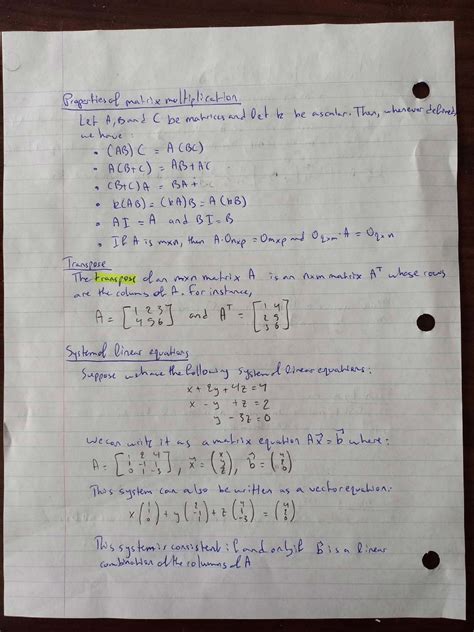 Properties of matrix multiplication
Let A, B and C be matrices and let k be a scalar. Then, whenever defined,
we have:
• (AB)C = A(BC)
• A(B+C) = AB+AC
• (B+C)A = BA+
• k(AB) = (kA)B = A(kB)
• AI = A and BI = B
• If A is mxn, then A·Onxp = Omxp and Oqxm·A = Oqxn
Transpose
The transpose of an mxn matrix A is an nxm matrix Aᵀ whose rows
are the colums of A. For instance,
A = [1 2 3; 4 5 6] and Aᵀ = [1 4; 2 5; 3 6]
System of linear equations
Suppose we have the following system of linear equations:
x + 2y + 4z = 4
x - y + z = 2
y - 3z = 0
We can write it as a matrix equation Ax⃗ = b⃗ where:
A = [1 2 4; 1 -1 1; 0 1 -3], x⃗ = (x y z), b⃗ = (4 2 0)
This system can also be written as a vector equation:
x(1 1 0) + y(2 -1 1) + z(4 1 -3) = (4 2 0)
This system is consistent if and only if b⃗ is a linear
combination of the columns of A